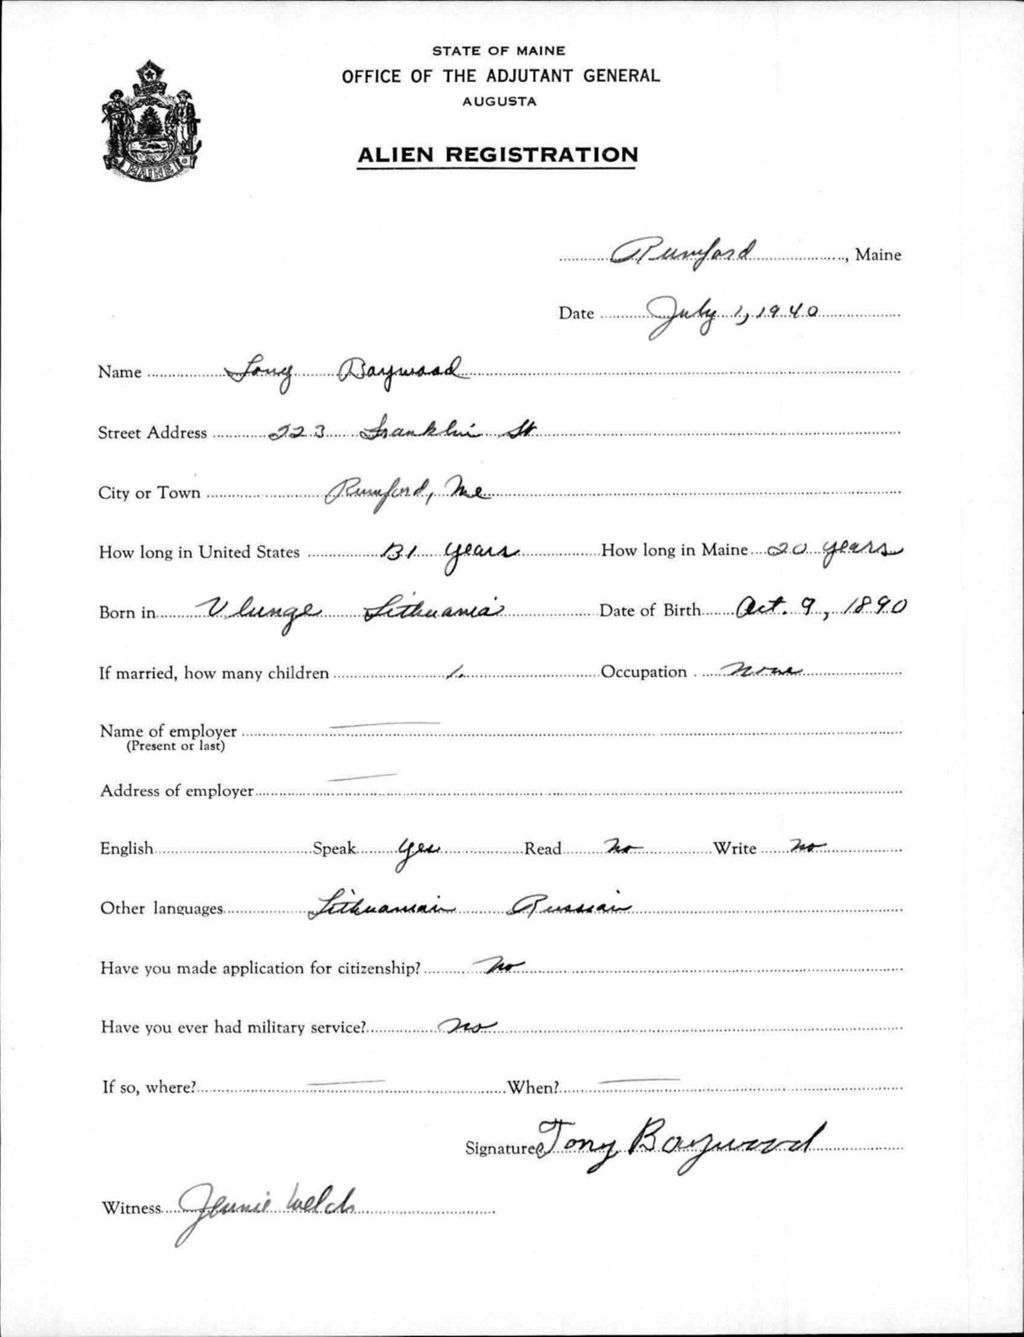 STATE OF MAINE
OFFICE OF THE ADJUTANT GENERAL
AUGUSTA
ALIEN REGISTRATION
MAINE
Rumford, Maine
Date July 1, 1940
Name Tony Baywood
Street Address 223 Franklin St
City or Town Rumford, Me
How long in United States 31 years How long in Maine 20 years
Born in Vlunge Lithuania Date of Birth Oct. 9, 1890
If married, how many children 1. Occupation None
Name of employer
(Present or last)
Address of employer
English Speak Yes Read No Write No
Other languages Lithuanian Russian
Have you made application for citizenship? No
Have you ever had military service? No
If so, where? When?
Signature Tony Baywood
Witness Jennie Welch